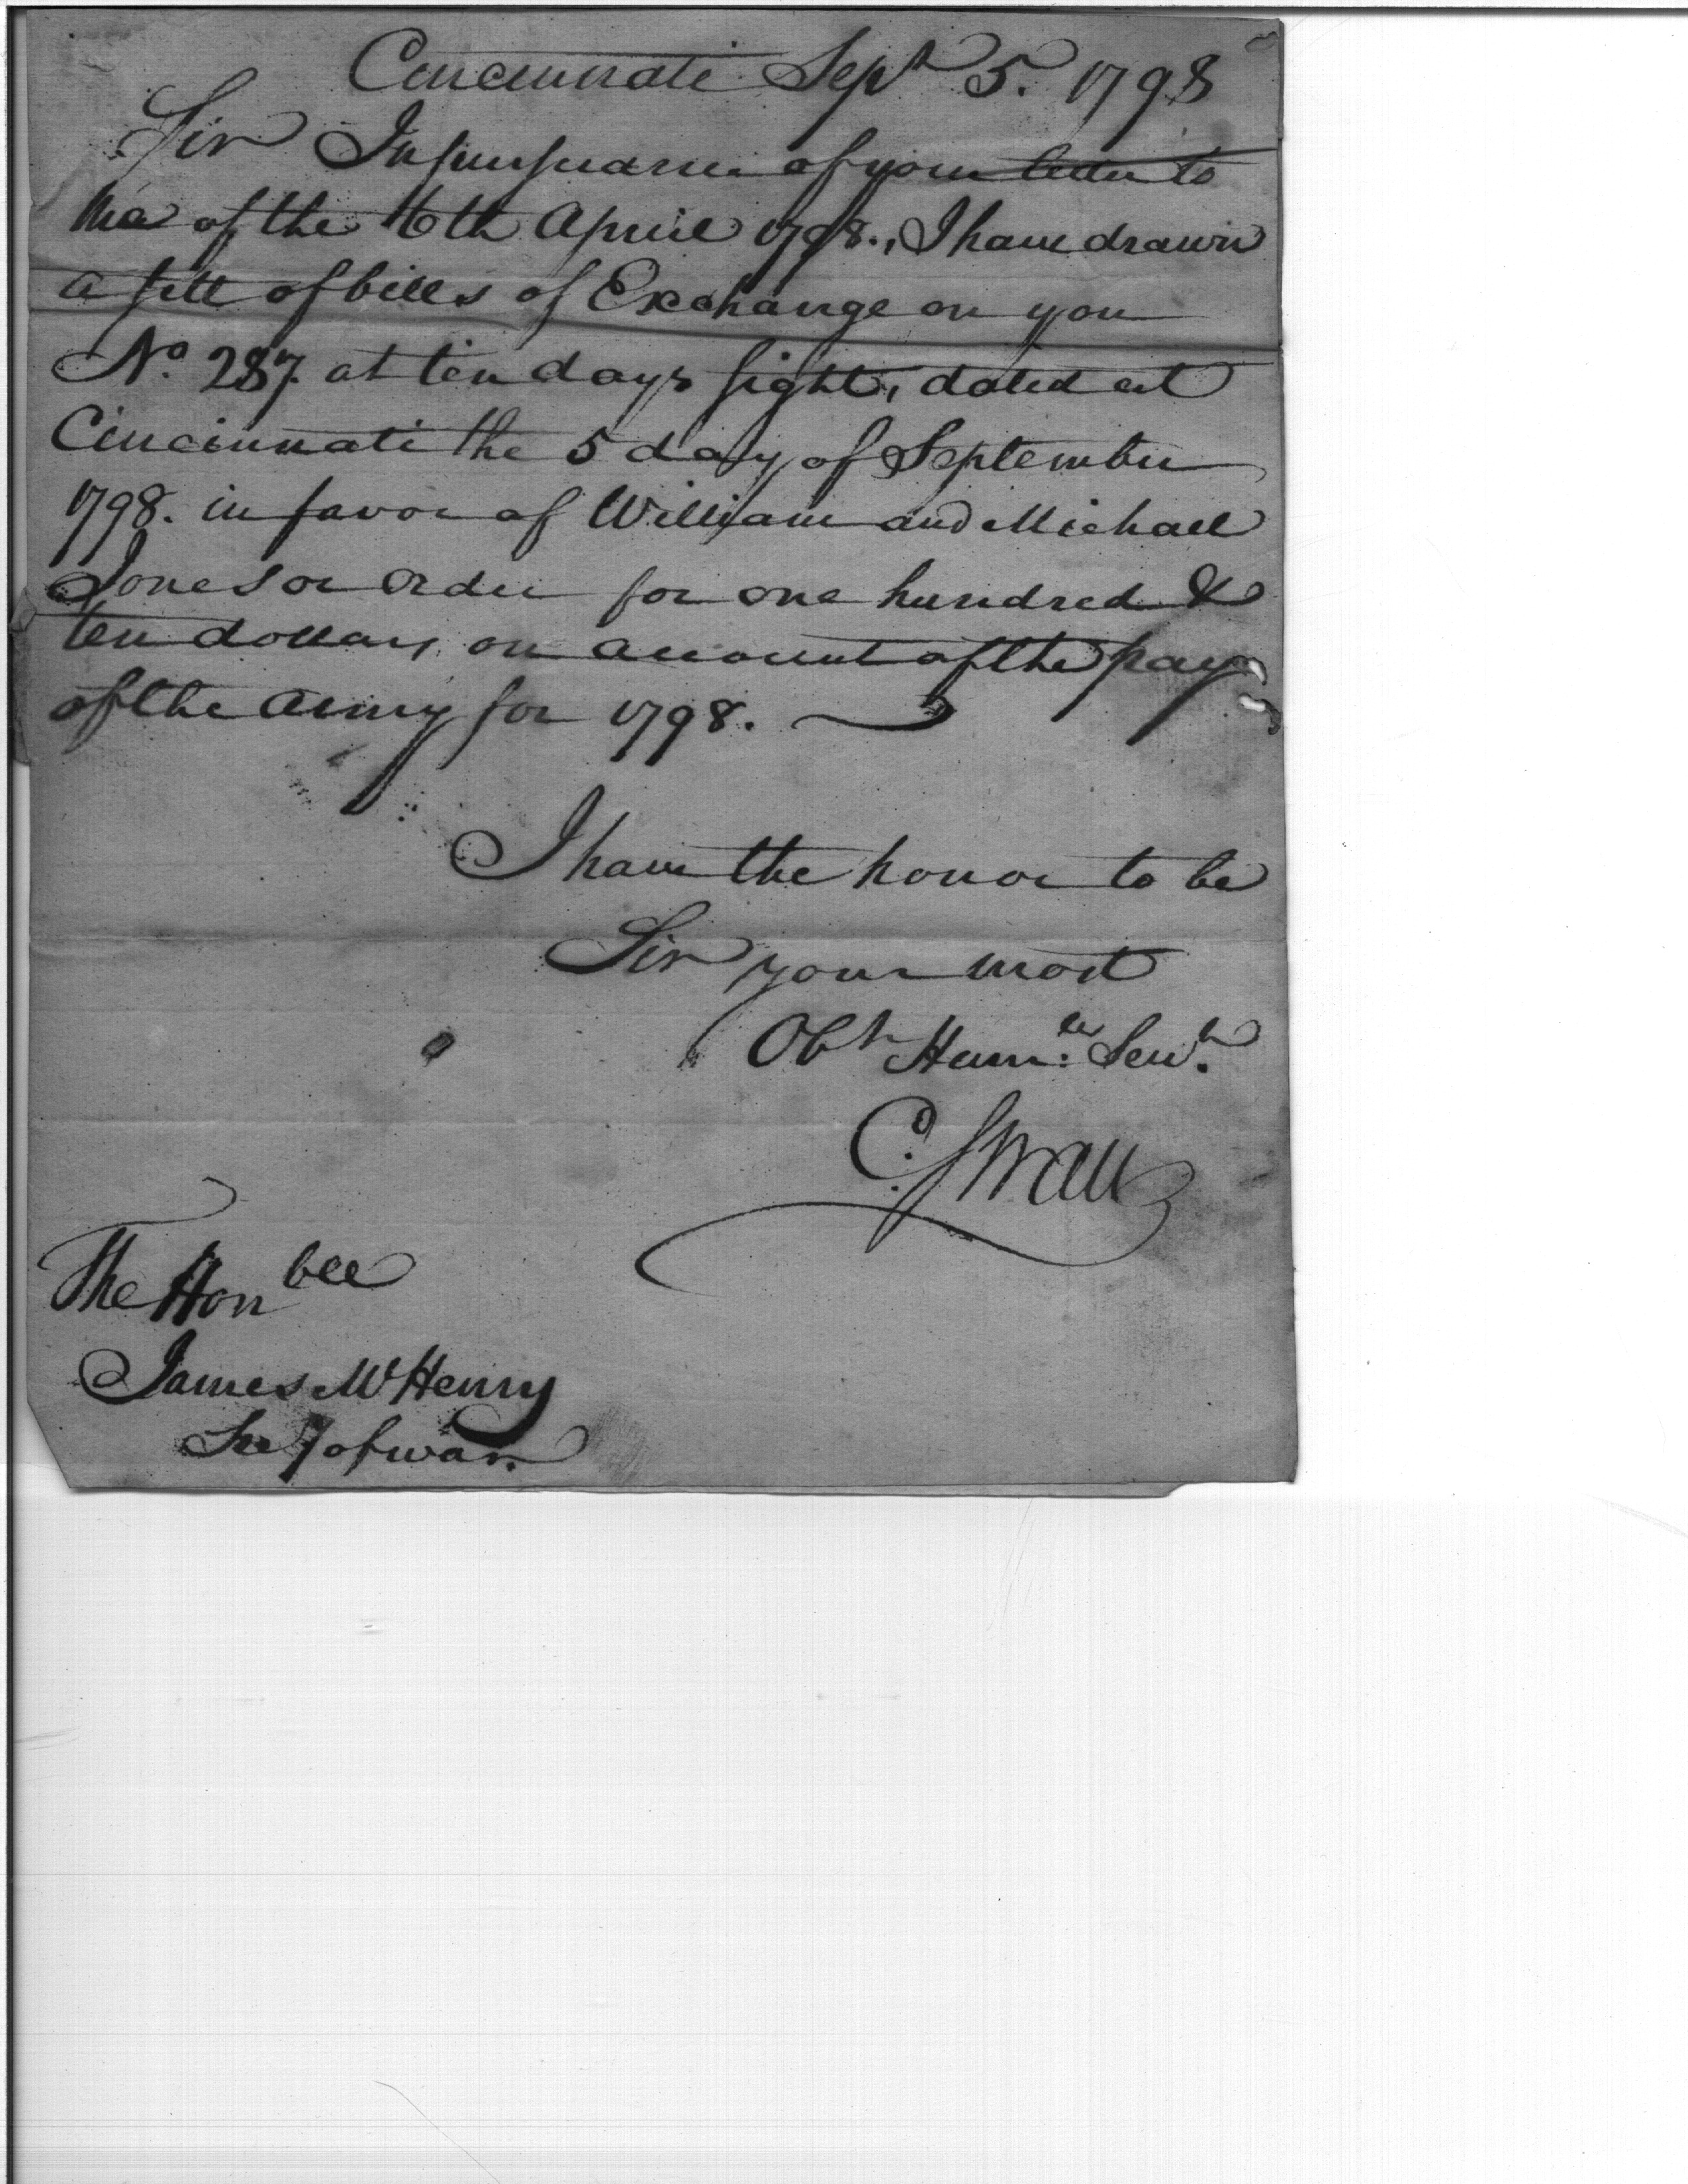 Cincinnati Sept 5. 1798
Sir In pursuance of your letter to
me of the 16th April 1798., I have drawn
a sett of bills of Exchange on you
No. 287. at ten days sight, dated at
Cincinnati the 5 day of September
1798. in favor of William and Michael
Jones or order for one hundred &
ten dollars, on account of the pay
of the army for 1798.
I have the honor to be
Sir your most
Obt Humble Servt.
C. Swan
The Honble
James McHenry
Secy of war.